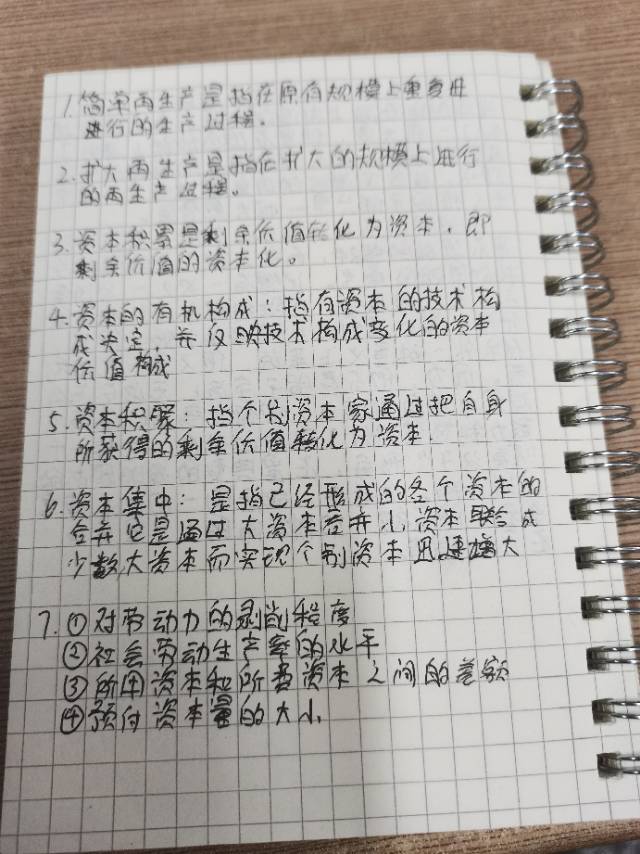 1.简单再生产是指在原有规模上重复进
进行的生产过程。
2.扩大再生产是指在扩大的规模上进行
的再生产过程。
3.资本积累是剩余价值转化为资本，即
剩余价值的资本化。
4.资本的有机构成：指有资本的技术构
成决定，并反映技术构成变化的资本
价值构成
5.资本积聚：指个别资本家通过把自身
所获得的剩余价值转化为资本
6.资本集中：是指已经形成的各个资本的
合并它是通过大资本吞并小资本联合成
少数大资本而实现个别资本迅速增大
7.①对劳动力的剥削程度
②社会劳动生产率的水平
③所用资本和所费资本之间的差额
④预付资本量的大小